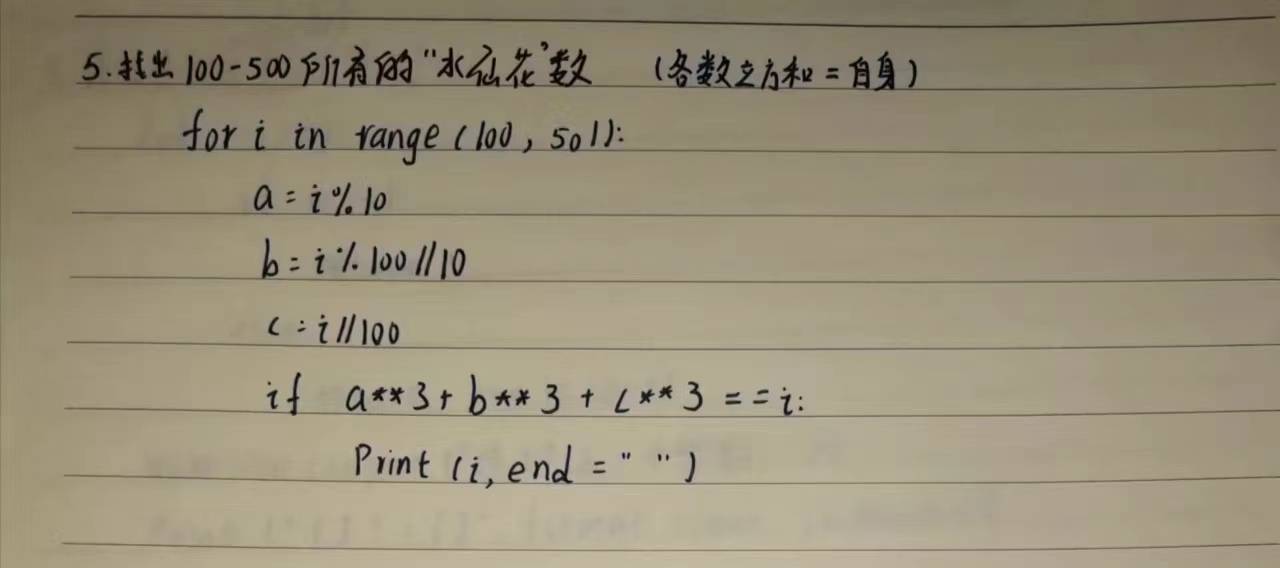 5.找出100-500所有的“水仙花”数 (各数立方和=自身)
for i in range (100, 501):
a = i % 10
b = i % 100 // 10
c = i // 100
if a**3 + b**3 + c**3 == i:
Print (i, end = " ")